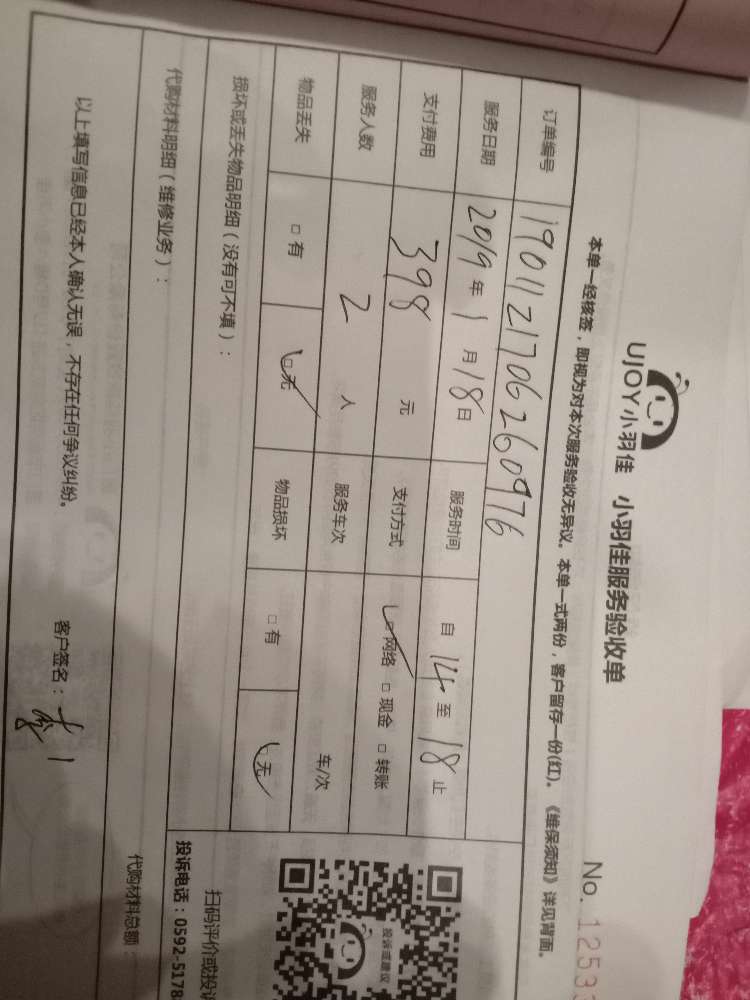 UJOY小羽佳 小羽佳服务验收单
No. 1253
本单一经核签，即视为对本次服务验收无异议。本单一式两份，客户留存一份(红)。《维保须知》详见背面。
订单编号 1901121706260976
服务日期 2019年1月18日 服务时间 自14至18止
支付费用 398元 支付方式 ☑网络 □现金 □转账
服务人数 2人 服务车次 车/次
物品丢失 □有 ☑无 物品损坏 □有 ☑无
损坏或丢失物品明细（没有可不填）：
代购材料明细（维修业务）：
代购材料总额：
以上填写信息已经本人确认无误，不存在任何争议纠纷。 客户签名：
投诉或建议
扫码评价或投诉
投诉电话：0592-5178